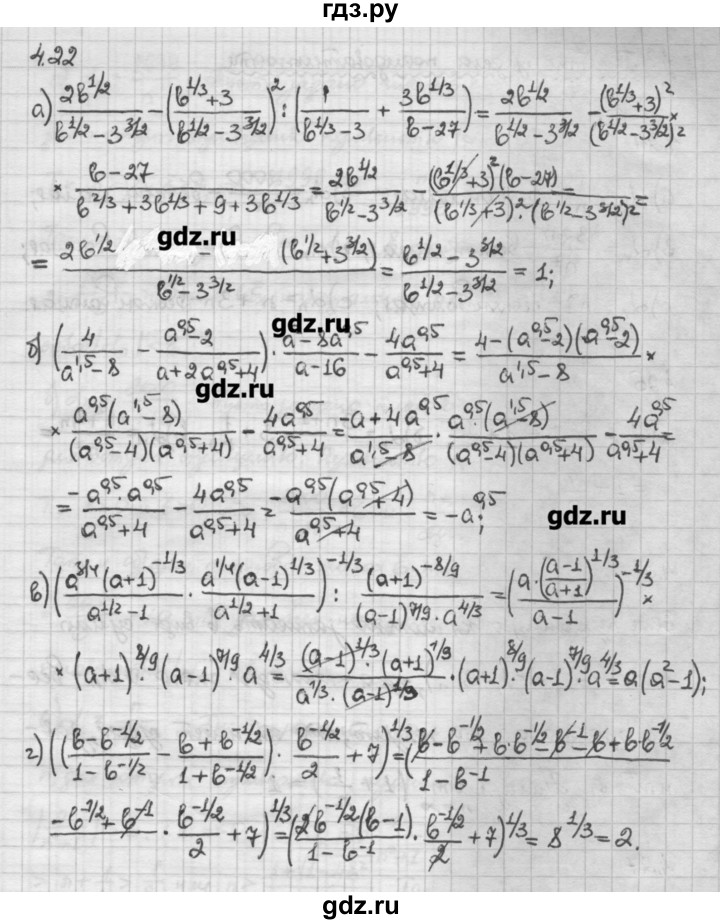 гдз.ру
4.22
а) 2b^{1/2}/(b^{1/2}-3^{3/2}) - ((b^{1/3}+3)/(b^{1/2}-3^{3/2}))^2 : (1/(b^{1/3}-3) + 3b^{1/3}/(b-27)) = 2b^{1/2}/(b^{1/2}-3^{3/2}) - (b^{1/3}+3)^2/(b^{1/2}-3^{3/2})^2 ×
× (b-27)/(b^{2/3}+3b^{1/3}+9+3b^{1/3}) = 2b^{1/2}/(b^{1/2}-3^{3/2}) - (b^{1/3}+3)^2(b-27)/((b^{1/3}+3)^2·(b^{1/2}-3^{3/2})^2) =
gdz.ru
= (2b^{1/2} - (b^{1/2}+3^{3/2}))/(b^{1/2}-3^{3/2}) = (b^{1/2}-3^{3/2})/(b^{1/2}-3^{3/2}) = 1;
gdz.ru
б) (4/(a^{1,5}-8) - (a^{0,5}-2)/(a+2a^{0,5}+4)) · (a-8a^{0,5})/(a-16) - 4a^{0,5}/(a^{0,5}+4) = (4-(a^{0,5}-2)(a^{0,5}-2))/(a^{1,5}-8) ×
gdz.ru
× a^{0,5}(a^{1,5}-8)/((a^{0,5}-4)(a^{0,5}+4)) - 4a^{0,5}/(a^{0,5}+4) = (-a+4a^{0,5})/(a^{1,5}-8) · a^{0,5}(a^{1,5}-8)/((a^{0,5}-4)(a^{0,5}+4)) - 4a^{0,5}/(a^{0,5}+4) =
= -a^{0,5}·a^{0,5}/(a^{0,5}+4) - 4a^{0,5}/(a^{0,5}+4) = -a^{0,5}(a^{0,5}+4)/(a^{0,5}+4) = -a^{0,5};
gdz.ru
в) (a^{3/4}(a+1)^{-1/3}/(a^{1/2}-1) · a^{1/4}(a-1)^{1/3}/(a^{1/2}+1))^{-1/3} : (a+1)^{-8/9}/((a-1)^{7/9}·a^{4/3}) = (a·((a-1)/(a+1))^{1/3}/(a-1))^{-1/3} ×
× (a+1)^{8/9}·(a-1)^{7/9}·a^{4/3} = (a-1)^{1/3}·(a+1)^{1/9}/(a^{1/3}·(a-1)^{1/3}) · (a+1)^{8/9}·(a-1)^{7/9}·a^{4/3} = a(a^2-1);
г) (((b-b^{-1/2})/(1-b^{-1/2}) - (b+b^{-1/2})/(1+b^{-1/2})) · b^{-1/2}/2 + 7)^{1/3} = ((b-b^{-1/2}+b·b^{-1/2}-b^{-1}-b+b·b^{-1/2})/(1-b^{-1})
(-b^{-1/2}+b^{-1}) · b^{-1/2}/2 + 7)^{1/3} = (2b^{-1/2}(b-1)/(1-b^{-1}) · b^{-1/2}/2 + 7)^{1/3} = 8^{1/3} = 2.
gdz.ru